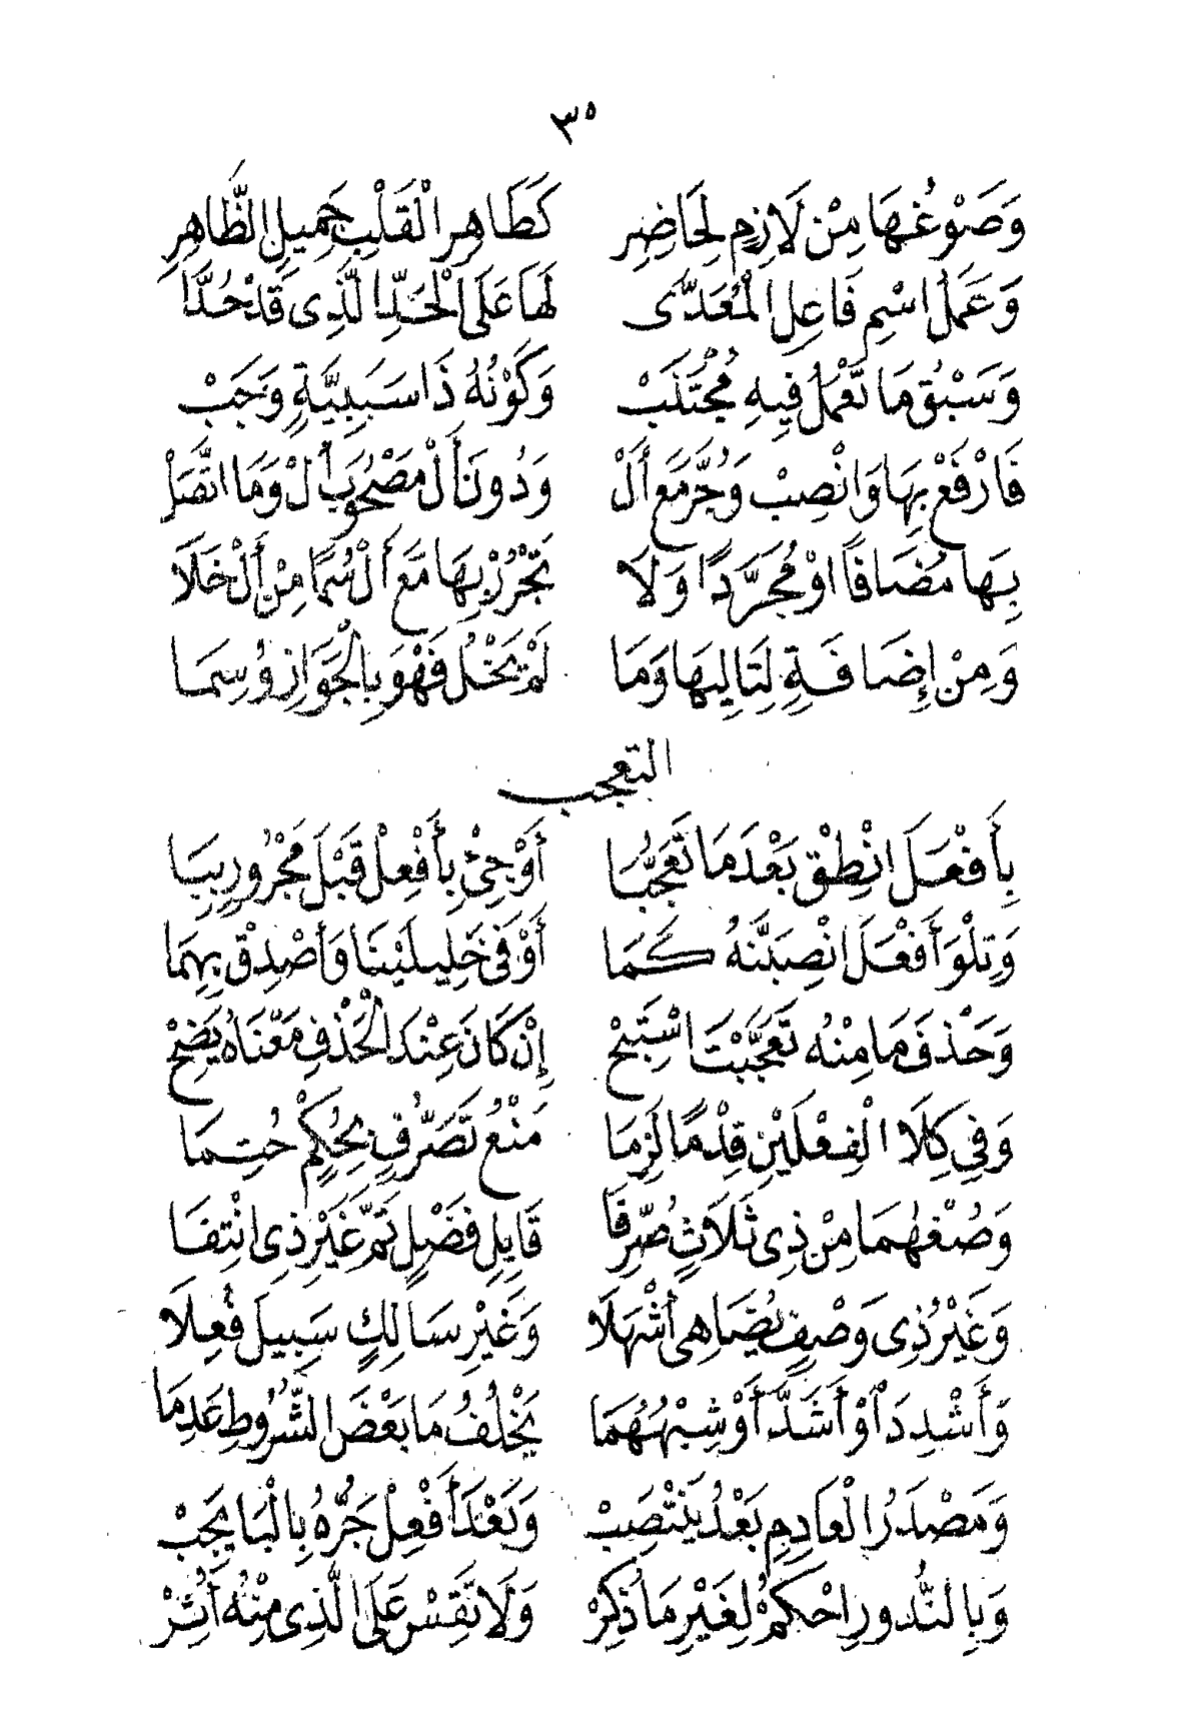 ٣٥
وَصَوْغُهَا مِنْ لَازِمٍ لِحَاضِرِ كَطَاهِرِ الْقَلْبِ جَمِيلِ الظَّاهِرِ
وَعَمَلُ اسْمِ فَاعِلِ الْمُعَدَّى لَهَا عَلَى الْحَدِّ الَّذِى قَدْ حُدَّا
وَسَبْقُ مَا تَعْمَلُ فِيهِ مُجْتَنَبْ وَكَوْنُهُ ذَا سَبَبِيَّةٍ وَجَبْ
فَارْفَعْ بِهَا وَانْصِبْ وَجُرَّ مَعَ أَلْ وَدُونَ أَلْ مَصْحُوبَ أَلْ وَمَا اتَّصَلْ
بِهَا مُضَافًا اوْ مُجَرَّدًا وَلَا تَجْرُرْ بِهَا مَعْ أَلْ سُمًا مِنْ أَلْ خَلَا
وَمِنْ إِضَافَةٍ لِتَالِيهَا وَمَا لَمْ يَخْلُ فَهْوَ بِالْجَوَازِ وُسِمَا
التعجب
بِأَفْعَلَ انْطِقْ بَعْدَ مَا تَعَجُّبَا أَوْ جِئْ بِأَفْعِلْ قَبْلَ مَجْرُورٍ بِبَا
وَتِلْوَ أَفْعَلَ انْصِبَنَّهُ كَمَا أَوْفَى خَلِيلَيْنَا وَأَصْدِقْ بِهِمَا
وَحَذْفَ مَا مِنْهُ تَعَجَّبْتَ اسْتَبِحْ إِنْ كَانَ عِنْدَ الْحَذْفِ مَعْنَاهُ يَضِحْ
وَفِى كِلَا الْفِعْلَيْنِ قِدْمًا لَزِمَا مَنْعُ تَصَرُّفٍ بِحُكْمٍ حُتِمَا
وَصُغْهُمَا مِنْ ذِى ثَلَاثٍ صُرِّفَا قَابِلِ فَضْلٍ تَمَّ غَيْرِ ذِى انْتِفَا
وَغَيْرِ ذِى وَصْفٍ يُضَاهِى أَشْهَلَا وَغَيْرِ سَالِكٍ سَبِيلَ فُعِلَا
وَأَشْدِدَ اَوْ أَشَدَّ أَوْ شِبْهُهُمَا يَخْلُفُ مَا بَعْضَ الشُّرُوطِ عَدِمَا
وَمَصْدَرُ الْعَادِمِ بَعْدُ يَنْتَصِبْ وَبَعْدَ أَفْعِلْ جَرُّهُ بِالْبَا يَجِبْ
وَبِالنُّدُورِ احْكُمْ لِغَيْرِ مَا ذُكِرْ وَلَا تَقِسْ عَلَى الَّذِى مِنْهُ أُثِرْ